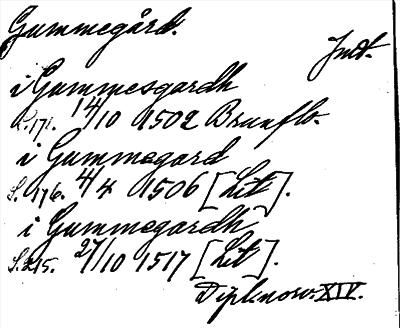 Gummegård.
Jmt.
i Gummesgardh
S. 171. 14/10 1502 Brunflo.
i Gummagard
S. 176. 4/4 1506 [Lit].
i Gummegardh
S. 215. 27/10 1517 [Lit].
Dipl. norv. XIV.